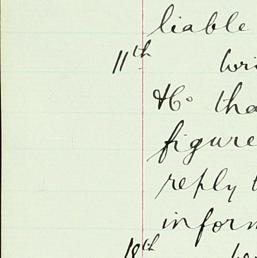 liable
11th wri
&Co tha
figure
reply t
inform
18th